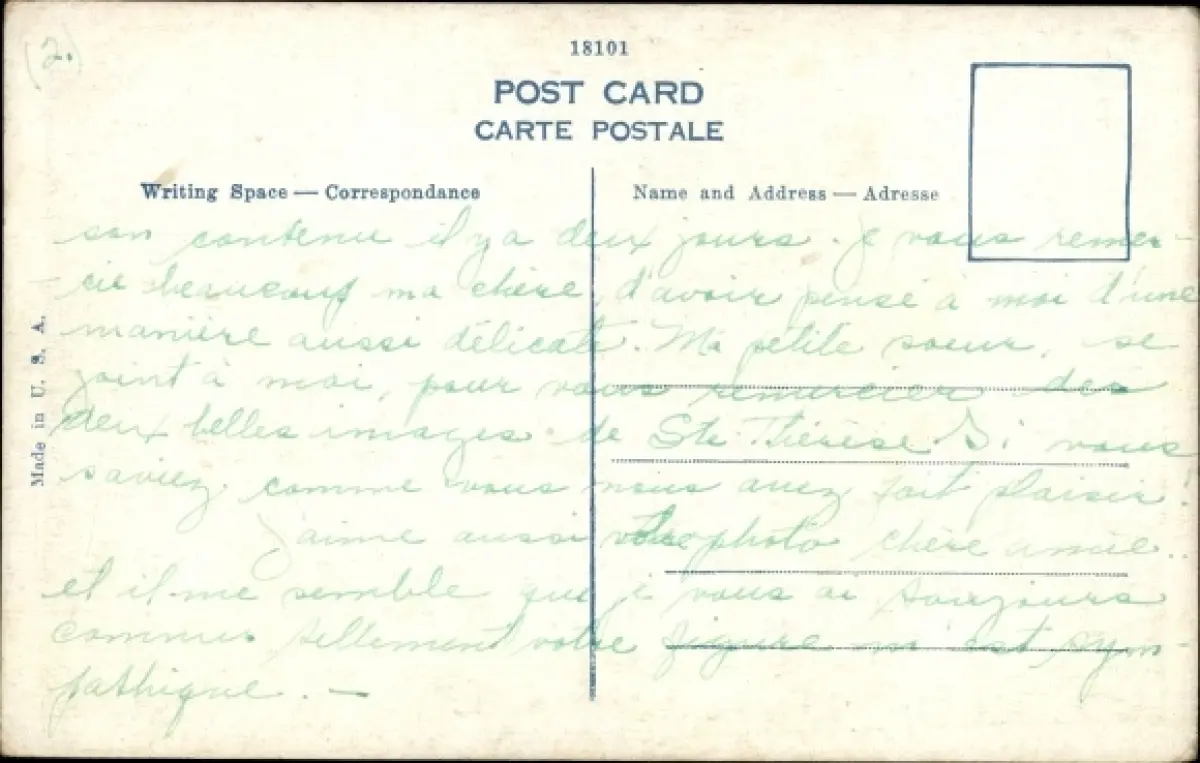 (2.)
18101
POST CARD
CARTE POSTALE
Writing Space — Correspondance
Name and Address — Adresse
Made in U. S. A.
son contenu il y a deux jours. Je vous remer-
cie beaucoup ma chère, d'avoir pensé à moi d'une
manière aussi délicate. Ma petite soeur, se
joint à moi pour vous remercier des
deux belles images de Ste Thérèse. Si vous
saviez comme vous nous avez fait plaisir!
J'aime aussi votre photo chère amie..
et il me semble que je vous ai toujours
connue tellement votre figure m'est sym-
pathique. —